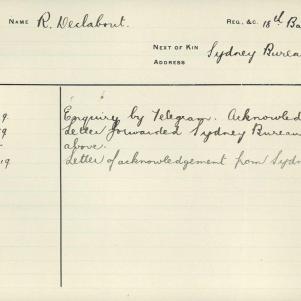 NAME R. Declabout. REG., &C. 18th Ba
NEXT OF KIN Sydney Burea
ADDRESS
9. Enquiry by Telegram. Acknowled
19 Letter forwarded Sydney Bureau
above.
19 Letter of acknowledgement from Sydn